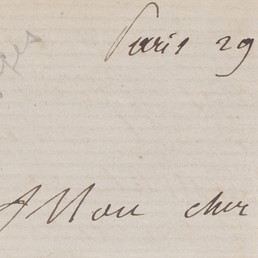 Paris 29
Mon cher